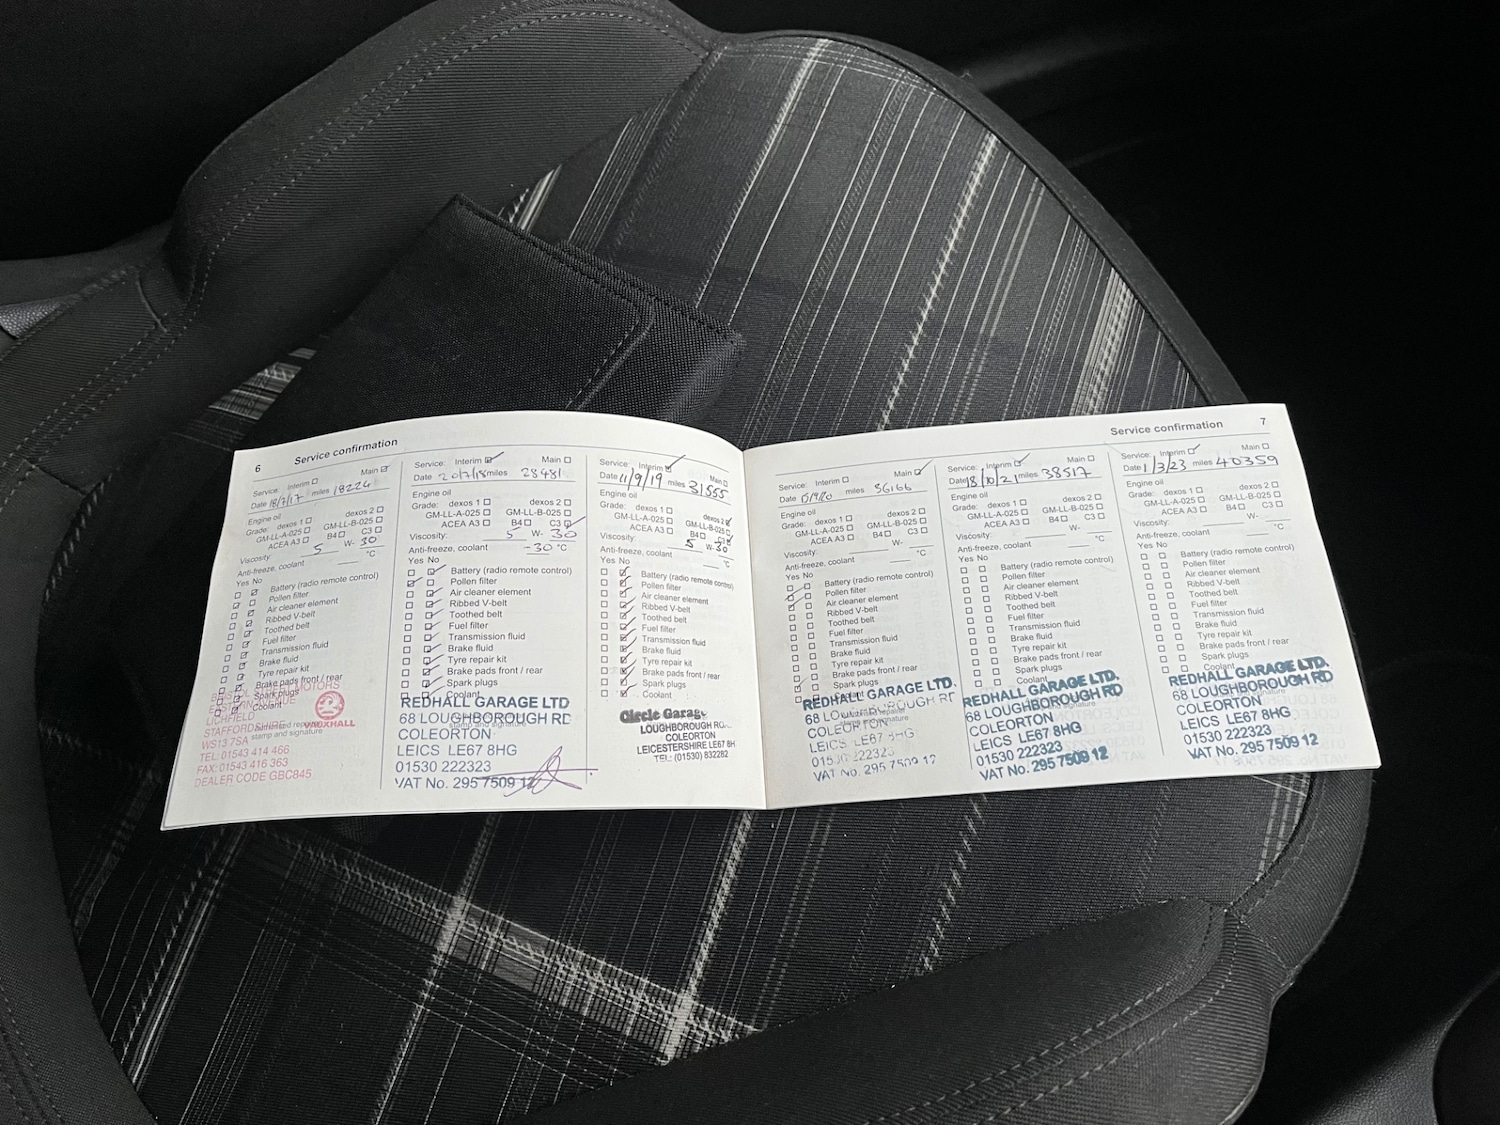 6 Service confirmation
Service: Interim Main
Date 18/7/17 miles 18224
Engine oil
Grade: dexos 1 dexos 2
GM-LL-A-025 GM-LL-B-025
ACEA A3 B4 C3
Viscosity: 5 W- 30
Anti-freeze, coolant °C
Yes No
Battery (radio remote control)
Pollen filter
Air cleaner element
Ribbed V-belt
Toothed belt
Fuel filter
Transmission fluid
Brake fluid
Tyre repair kit
Brake pads front / rear
Spark plugs
Coolant
MOTORS
LICHFIELD
STAFFORDSHIRE
WS13 7SA
TEL: 01543 414 466
FAX: 01543 416 363
DEALER CODE GBC845
VAUXHALL
stamp and signature
Service: Interim Main
Date 20/7/18 miles 28481
Engine oil
Grade: dexos 1 dexos 2
GM-LL-A-025 GM-LL-B-025
ACEA A3 B4 C3
Viscosity: 5 W- 30
Anti-freeze, coolant -30 °C
Yes No
Battery (radio remote control)
Pollen filter
Air cleaner element
Ribbed V-belt
Toothed belt
Fuel filter
Transmission fluid
Brake fluid
Tyre repair kit
Brake pads front / rear
Spark plugs
Coolant
REDHALL GARAGE LTD
68 LOUGHBOROUGH RD
COLEORTON
LEICS LE67 8HG
01530 222323
VAT No. 295 7509 12
Service: Interim Main
Date 11/9/19 miles 31555
Engine oil
Grade: dexos 1 dexos 2
GM-LL-A-025 GM-LL-B-025
ACEA A3 B4 C3
Viscosity: 5 W- 30
Anti-freeze, coolant °C
Yes No
Battery (radio remote control)
Pollen filter
Air cleaner element
Ribbed V-belt
Toothed belt
Fuel filter
Transmission fluid
Brake fluid
Tyre repair kit
Brake pads front / rear
Spark plugs
Coolant
Circle Garage
LOUGHBOROUGH RD
COLEORTON
LEICESTERSHIRE LE67 8H
TEL: (01530) 832282
Service confirmation 7
Service: Interim Main
Date miles 36166
Engine oil
Grade: dexos 1 dexos 2
GM-LL-A-025 GM-LL-B-025
ACEA A3 B4 C3
Viscosity: W-
Anti-freeze, coolant °C
Yes No
Battery (radio remote control)
Pollen filter
Air cleaner element
Ribbed V-belt
Toothed belt
Fuel filter
Transmission fluid
Brake fluid
Tyre repair kit
Brake pads front / rear
Spark plugs
Coolant
REDHALL GARAGE LTD.
68 LOUGHBOROUGH RD
COLEORTON
LEICS LE67 8HG
01530 222323
VAT No. 295 7509 12
Service: Interim Main
Date 18/10/21 miles 38517
Engine oil
Grade: dexos 1 dexos 2
GM-LL-A-025 GM-LL-B-025
ACEA A3 B4 C3
Viscosity: W-
Anti-freeze, coolant °C
Yes No
Battery (radio remote control)
Pollen filter
Air cleaner element
Ribbed V-belt
Toothed belt
Fuel filter
Transmission fluid
Brake fluid
Tyre repair kit
Brake pads front / rear
Spark plugs
Coolant
REDHALL GARAGE LTD.
68 LOUGHBOROUGH RD
COLEORTON
LEICS LE67 8HG
01530 222323
VAT No. 295 7509 12
Service: Interim Main
Date 1/3/23 miles 40359
Engine oil
Grade: dexos 1 dexos 2
GM-LL-A-025 GM-LL-B-025
ACEA A3 B4 C3
Viscosity: W-
Anti-freeze, coolant °C
Yes No
Battery (radio remote control)
Pollen filter
Air cleaner element
Ribbed V-belt
Toothed belt
Fuel filter
Transmission fluid
Brake fluid
Tyre repair kit
Brake pads front / rear
Spark plugs
Coolant
REDHALL GARAGE LTD.
68 LOUGHBOROUGH RD
COLEORTON
LEICS LE67 8HG
01530 222323
VAT No. 295 7509 12